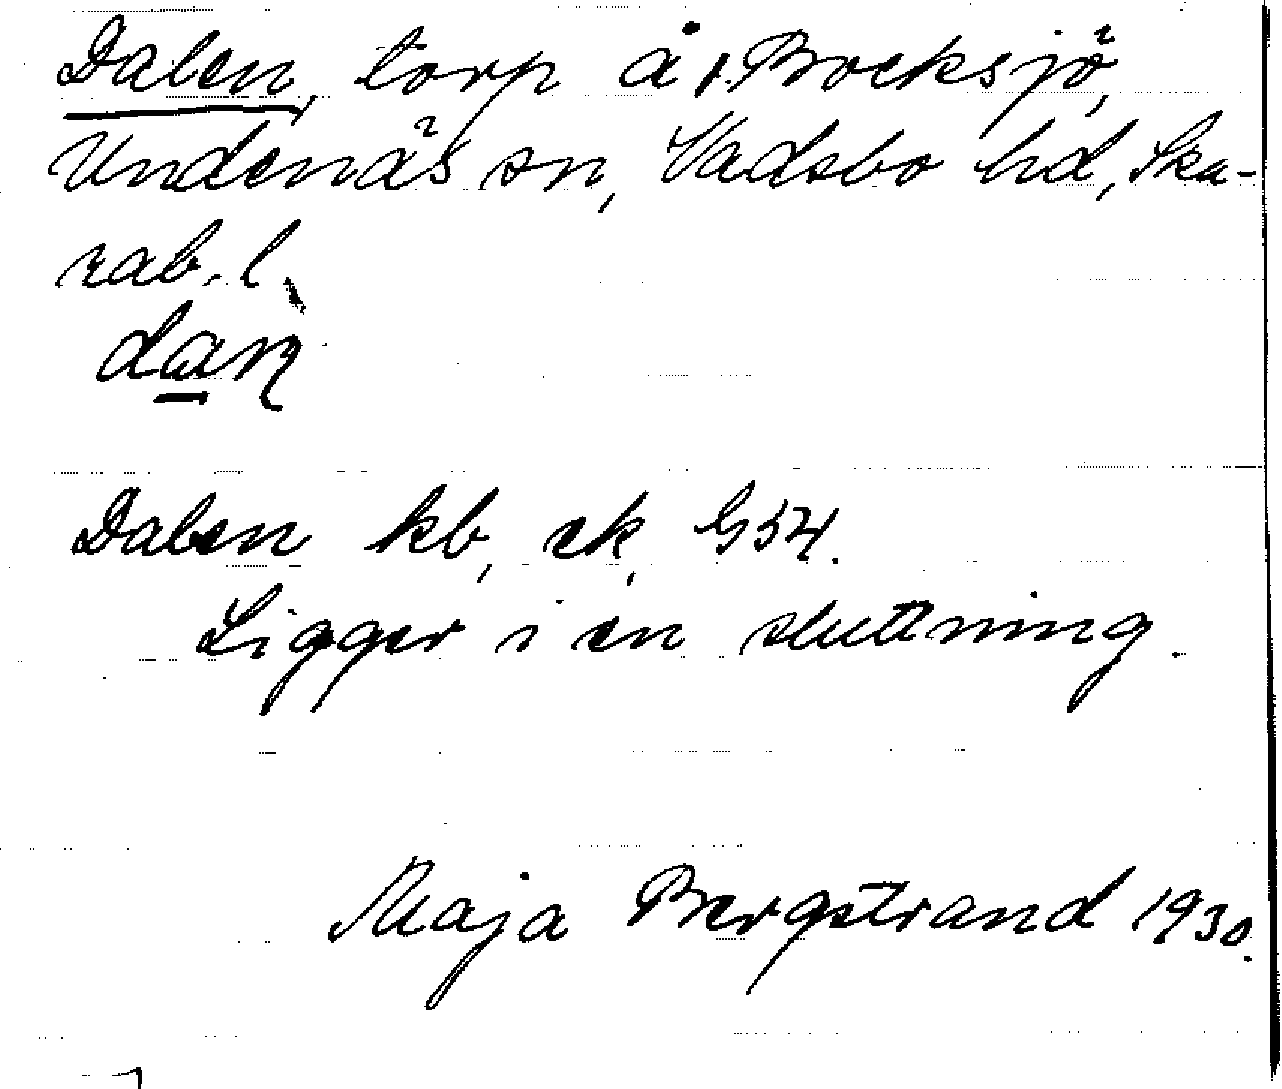 Dalen, torp å 1 Bocksjö,
Undenäs sn, Vadsbo hd, Ska-
rab. l.
Dalen kb, ek, G54.
Ligger i en sluttning.
Maja Bergstrand 1930.